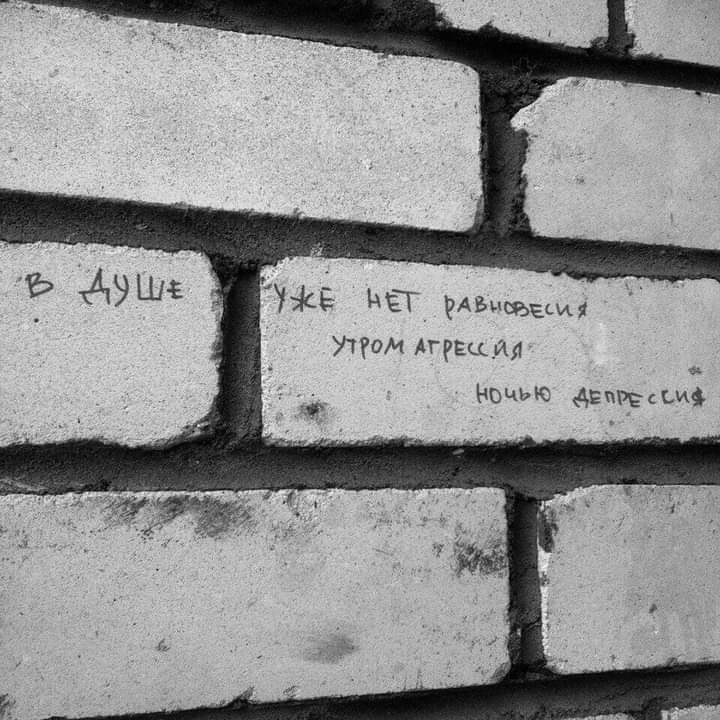 В ДУШЕ УЖЕ НЕТ РАВНОВЕСИЯ
УТРОМ АГРЕССИЯ
НОЧЬЮ ДЕПРЕССИЯ